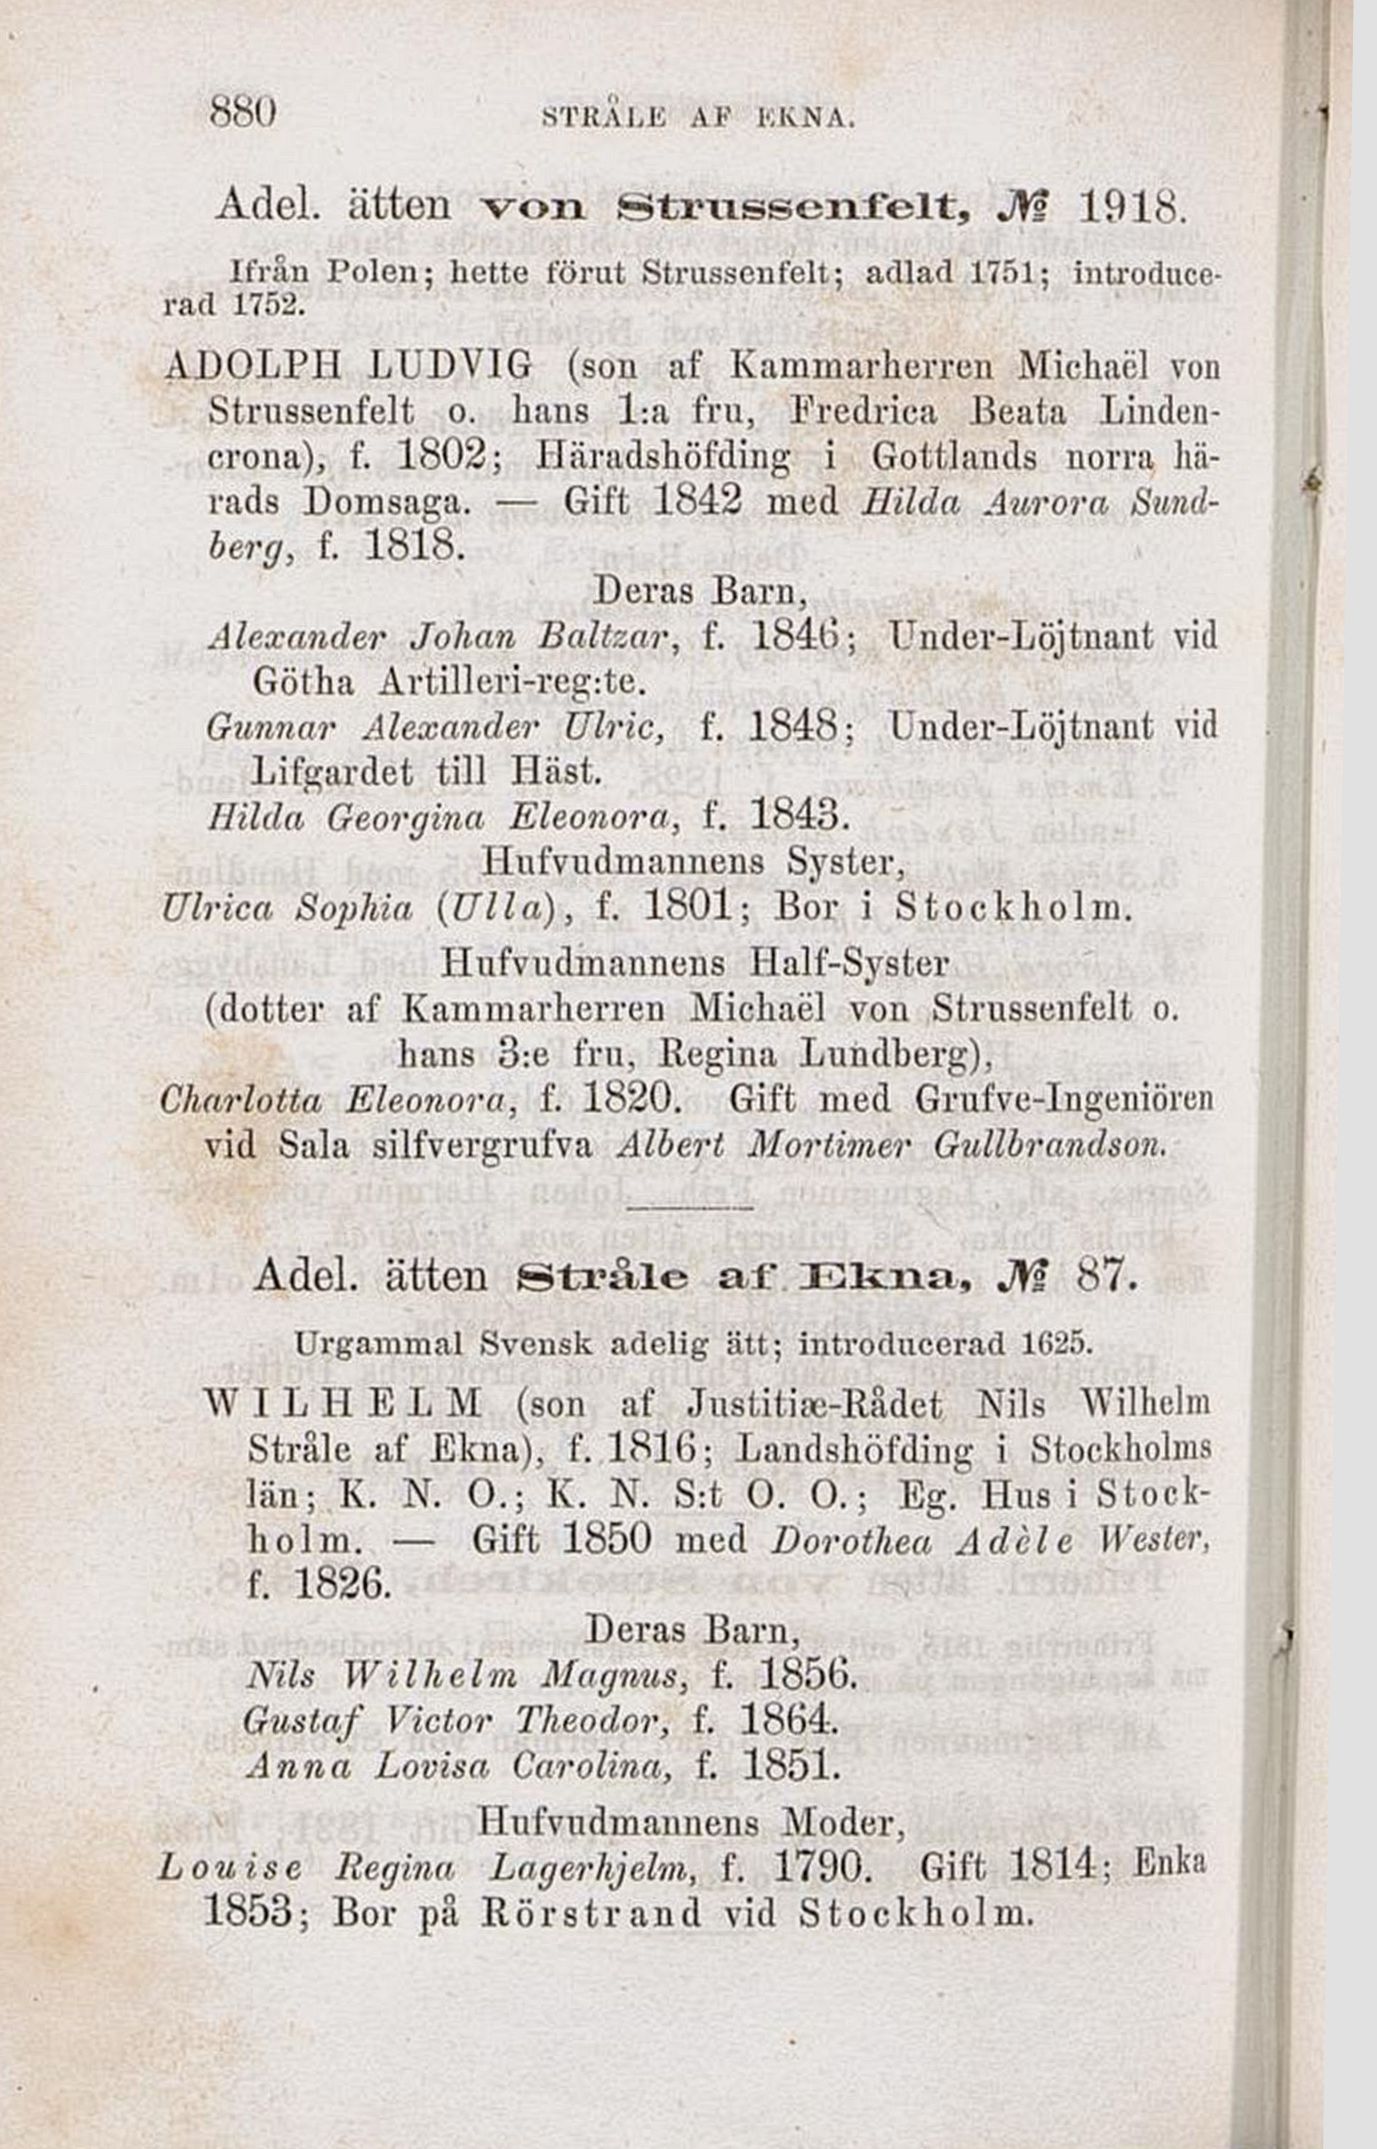 880 STRÅLE AF EKNA.
Adel. ätten von Strussenfelt, № 1918.
Ifrån Polen; hette förut Strussenfelt; adlad 1751; introduce-
rad 1752.
ADOLPH LUDVIG (son af Kammarherren Michaël von
Strussenfelt o. hans 1:a fru, Fredrica Beata Linden-
crona), f. 1802; Häradshöfding i Gottlands norra hä-
rads Domsaga. — Gift 1842 med Hilda Aurora Sund-
berg, f. 1818.
Deras Barn,
Alexander Johan Baltzar, f. 1846; Under-Löjtnant vid
Götha Artilleri-reg:te.
Gunnar Alexander Ulric, f. 1848; Under-Löjtnant vid
Lifgardet till Häst.
Hilda Georgina Eleonora, f. 1843.
Hufvudmannens Syster,
Ulrica Sophia (Ulla), f. 1801; Bor i Stockholm.
Hufvudmannens Half-Syster
(dotter af Kammarherren Michaël von Strussenfelt o.
hans 3:e fru, Regina Lundberg),
Charlotta Eleonora, f. 1820. Gift med Grufve-Ingeniören
vid Sala silfvergrufva Albert Mortimer Gullbrandson.
Adel. ätten Stråle af Ekna, № 87.
Urgammal Svensk adelig ätt; introducerad 1625.
WILHELM (son af Justitiæ-Rådet Nils Wilhelm
Stråle af Ekna), f. 1816; Landshöfding i Stockholms
län; K. N. O.; K. N. S:t O. O.; Eg. Hus i Stock-
holm. — Gift 1850 med Dorothea Adèle Wester,
f. 1826.
Deras Barn,
Nils Wilhelm Magnus, f. 1856.
Gustaf Victor Theodor, f. 1864.
Anna Lovisa Carolina, f. 1851.
Hufvudmannens Moder,
Louise Regina Lagerhjelm, f. 1790. Gift 1814; Enka
1853; Bor på Rörstrand vid Stockholm.